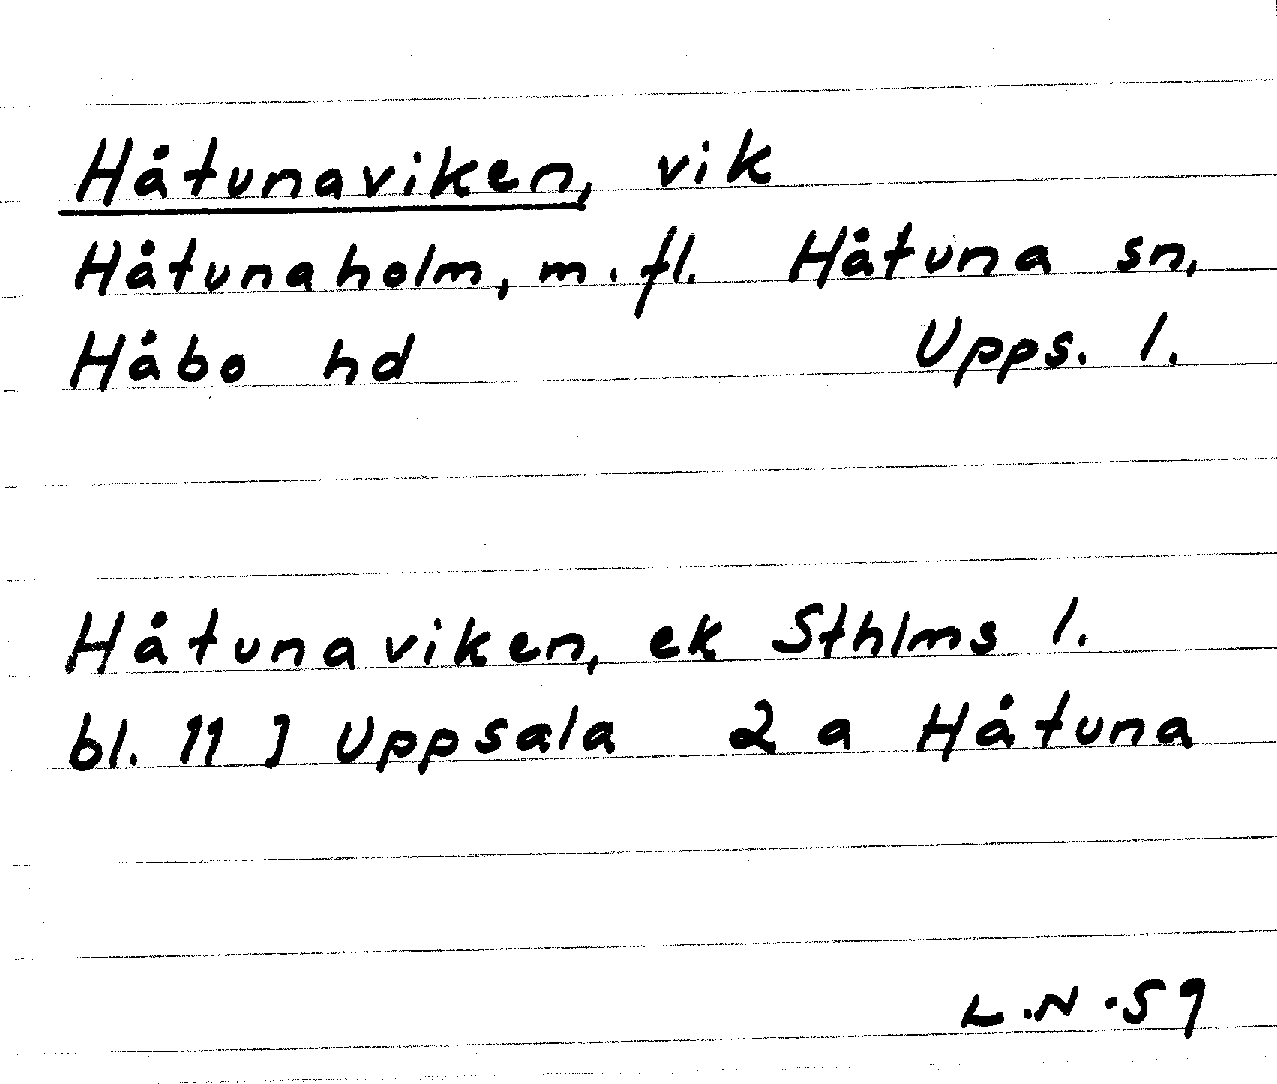 Håtunaviken, vik
Håtunaholm, m.fl. Håtuna sn,
Håbo hd Upps. l.
Håtunaviken, ek Sthlms l.
bl. 11 I Uppsala 2 a Håtuna
L.N.59